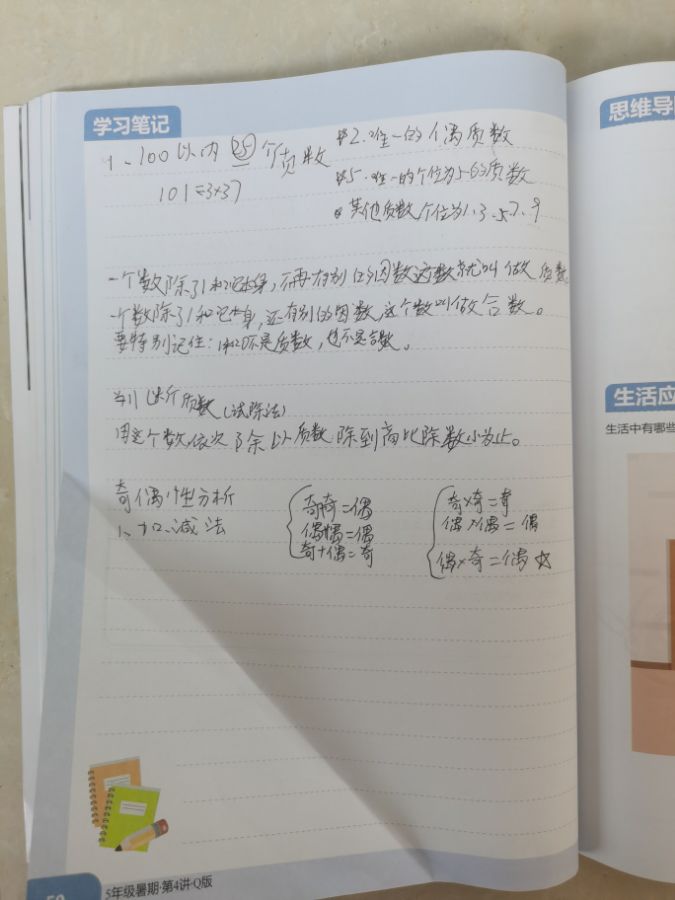 学习笔记
1、100以内25个质数
2.唯一的个偶质数
101=3×37
5.唯一的个位为5的质数
其他质数个位为1.3.7.9
一个数除了1和它本身,不再有别的因数这数就叫做质数。
一个数除了1和它本身,还有别的因数,这个数叫做合数。
要特别记住:1和0不是质数,也不是合数。
判断质数(试除法)
用这个数依次除以质数除到商比除数小为止。
奇偶性分析
1、加减法
奇+奇=偶
偶+偶=偶
奇+偶=奇
奇×奇=奇
偶×偶=偶
偶×奇=偶
5年级暑期·第4讲·Q版
思维导
生活应
生活中有哪些